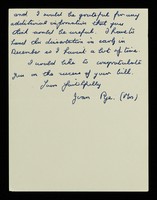 and I would be grateful for any
additional information that you
think would be useful. I have to
hand the dissertation in early in
December so I haven't a lot of time.
I would like to congratulate
you on the success of your bill.
Yours faithfully
Pye. (Mrs)